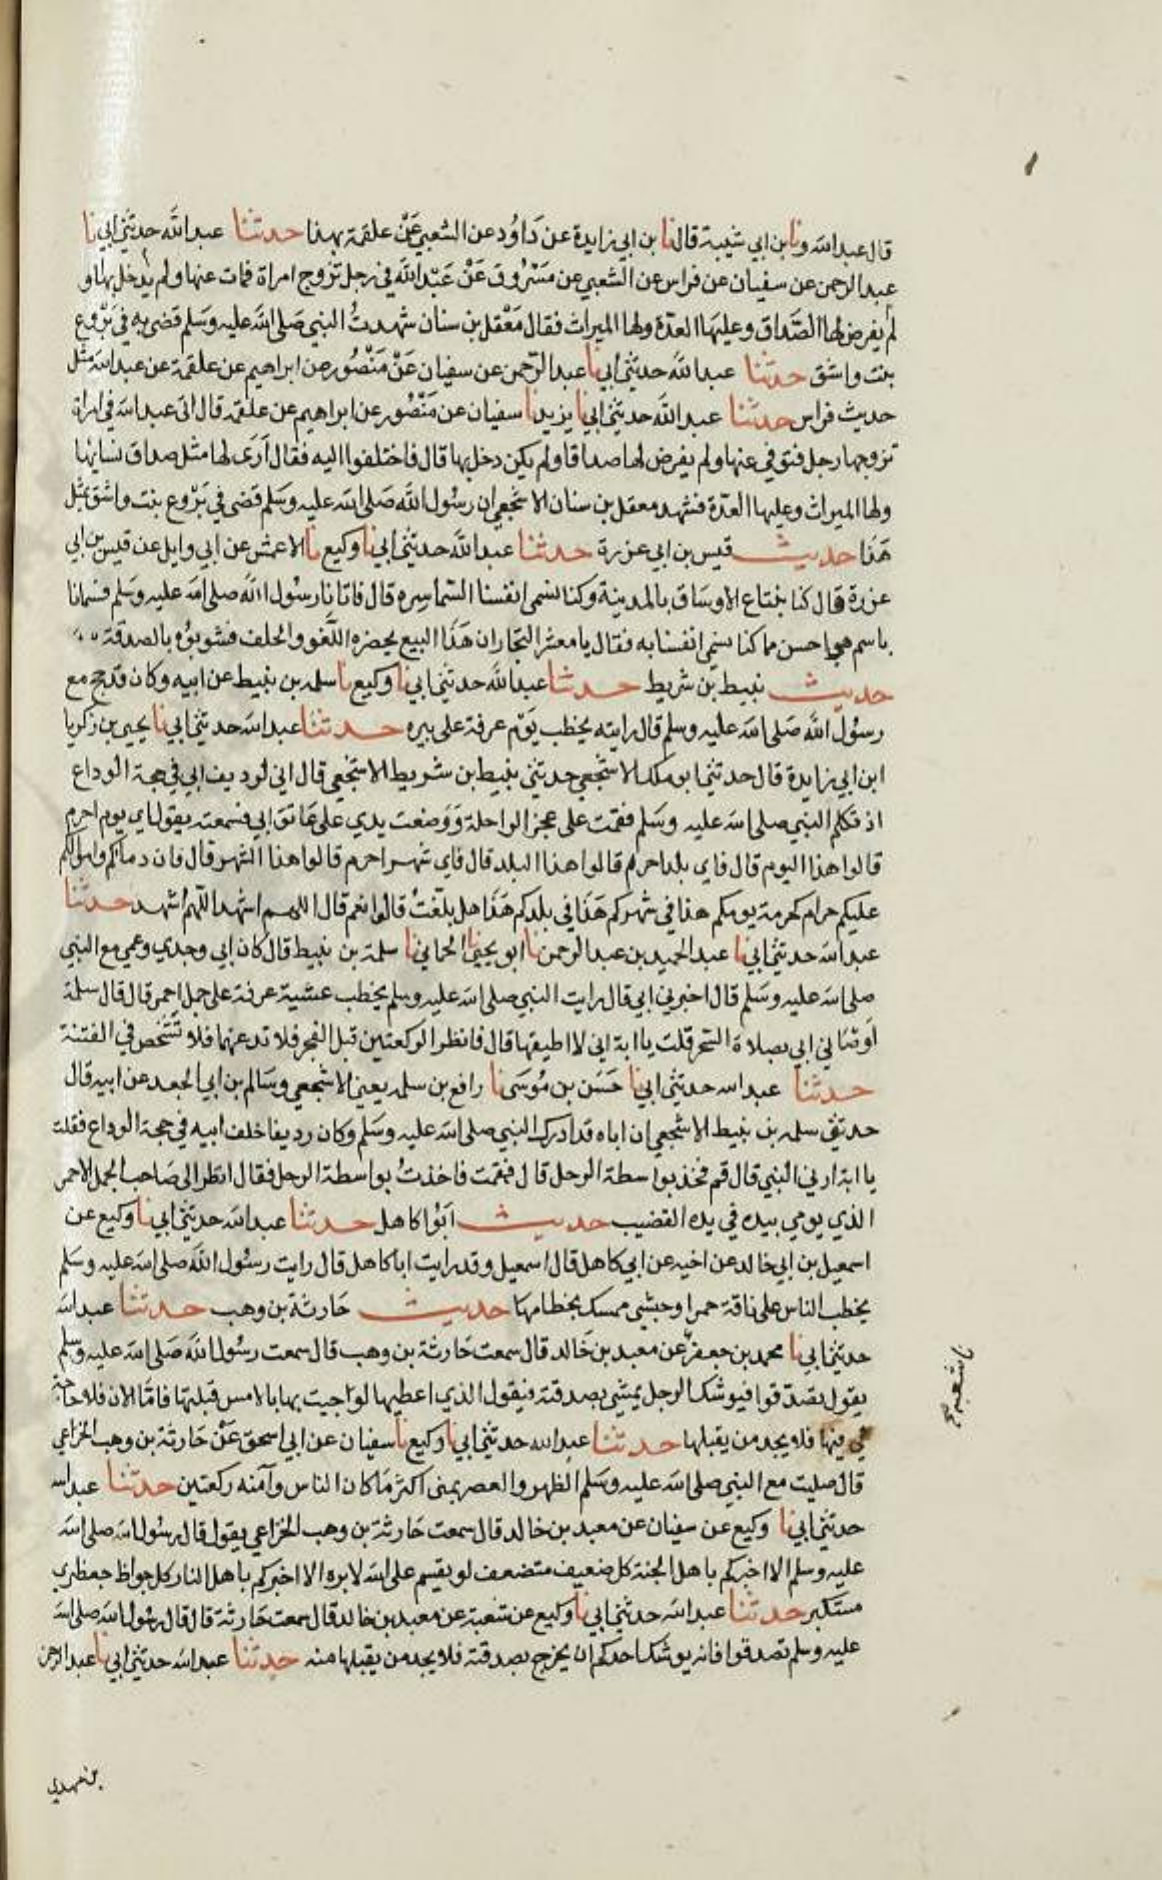 قال عبد الله ونا بن ابي شيبة قال نا بن ابي زايدة عن داود عن الشعبي عن علقمة بهذا حدثنا عبد الله حدثني ابي نا
عبد الرحمن عن سفيان عن فراس عن الشعبي عن مسروق عن عبد الله في رجل تزوج امراة فمات عنها ولم يدخل بها و
لم يفرض لها الصداق وعليها العدة ولها الميراث فقال معقل بن سنان شهدت النبي صلى الله عليه وسلم قضى به في بروع
بنت واشق حدثنا عبد الله حدثني ابي نا عبد الرحمن عن سفيان عن منصور عن ابراهيم عن علقمة عن عبد الله مثل
حديث فراس حدثنا عبد الله حدثني ابي نا يزيد نا سفيان عن منصور عن ابراهيم عن علقمة قال اتى عبد الله في امراة
تزوجها رجل فتوفي عنها ولم يفرض لها صداقا ولم يكن دخل بها قال فاختلفوا اليه فقال أرى لها مثل صداق نسائها
ولها الميراث وعليها العدة فشهد معقل بن سنان الاشجعي ان رسول الله صلى الله عليه وسلم قضى في بروع بنت واشق بمثل
هذا حديث قيس بن ابي عزرة حدثنا عبد الله حدثني ابي نا وكيع نا الاعمش عن ابي وايل عن قيس بن ابي
عزرة قال كنا نبتاع الاوساق بالمدينة وكنا نسمى انفسنا السماسره قال فاتانا رسول الله صلى الله عليه وسلم فسمانا
باسم هي احسن مما كنا نسمي انفسنا به فقال يا معشر التجار ان هذا البيع يحضره اللغو والحلف فشوبوه بالصدقة
حديث نبيط بن شريط حدثنا عبد الله حدثني ابي نا وكيع نا سلمه بن نبيط عن ابيه وكان قد حج مع
رسول الله صلى الله عليه وسلم قال رايته يخطب يوم عرفة على بيره حدثنا عبد الله حدثني ابي نا يحيى بن زكريا
ابن ابي زايدة قال حدثني ابو ملك الاشجعي حدثني نبيط بن شريط الاشجعي قال اني لرديف ابي في حجة الوداع
اذ تكلم النبي صلى الله عليه وسلم فقمت على عجز الراحلة ووضعت يدي على عاتق ابي فسمعته يقول اي يوم احرم
قالوا هذا اليوم قال فاي بلد احرم قالوا هذا البلد قال فاي شهر احرم قالوا هذا الشهر قال فان دماكم واموالكم
عليكم حرام كحرمة يومكم هذا في شهركم هذا في بلدكم هذا هل بلغت قالوا نعم قال اللهم اشهد اللهم اشهد حدثنا
عبد الله حدثني ابي نا عبد الحميد بن عبد الرحمن نا ابو يحيى الحماني نا سلمة بن نبيط قال كان ابي وجدي وعمي مع النبي
صلى الله عليه وسلم قال اخبرني ابي قال رايت النبي صلى الله عليه وسلم يخطب عشية عرفة على جمل احمر قال قال سلمة
اوصاني ابي بصلاة السحر قلت يا ابة اني لا اطيقها قال فانظر الركعتين قبل الفجر فلا تدعنهما فلا تشخص في الفتنة
حدثنا عبد الله حدثني ابي نا حسن بن موسى نا رافع بن سلمه يعني الاشجعي وسالم بن ابي الجعد عن ابيه قال
حدثني سلمه بن نبيط الاشجعي ان اباه قد ادرك النبي صلى الله عليه وسلم وكان رديفا خلف ابيه في حجة الوداع فقلت
يا ابة ارني النبي قال قم فخذ بواسطة الرحل قال فقمت فاخذت بواسطة الرحل فقال انظر الى صاحب الجمل الاحمر
الذي يومي بيده في يده القضيب حديث ابو كاهل حدثنا عبد الله حدثني ابي نا وكيع عن
اسمعيل بن ابي خالد عن اخيه عن ابي كاهل قال اسمعيل وقد رايت ابا كاهل قال رايت رسول الله صلى الله عليه وسلم
يخطب الناس على ناقة حمرا وحبشي ممسك بخطامها حديث حارثة بن وهب حدثنا عبد الله
حدثني ابي نا محمد بن جعفر عن معبد بن خالد قال سمعت حارثة بن وهب قال سمعت رسول الله صلى الله عليه وسلم
يقول تصدقوا فيوشك الرجل يمشي بصدقته فيقول الذي اعطيها لو اجيت بها بالامس قبلتها فاما الان فلا حاجة
لي فيها فلا يجد من يقبلها حدثنا عبد الله حدثني ابي نا وكيع نا سفيان عن ابي اسحق عن حارثة بن وهب الخزاعي
قال صليت مع النبي صلى الله عليه وسلم الظهر والعصر بمنى اكثر ما كان الناس وآمنه ركعتين حدثنا عبد الله
حدثني ابي نا وكيع عن سفيان عن معبد بن خالد قال سمعت حارثة بن وهب الخزاعي يقول قال رسول الله صلى الله
عليه وسلم الا اخبركم باهل الجنة كل ضعيف متضعف لو يقسم على الله لابره الا اخبركم باهل النار كل جواظ جعظري
مستكبر حدثنا عبد الله حدثني ابي نا وكيع عن شعبة عن معبد بن خالد قال سمعت حارثة قال قال رسول الله صلى الله
عليه وسلم تصدقوا فانه يوشك احدكم ان يخرج بصدقته فلا يجد من يقبلها منه حدثنا عبد الله حدثني ابي نا عبد الرحمن
نا شعبة صح
بن مهدي